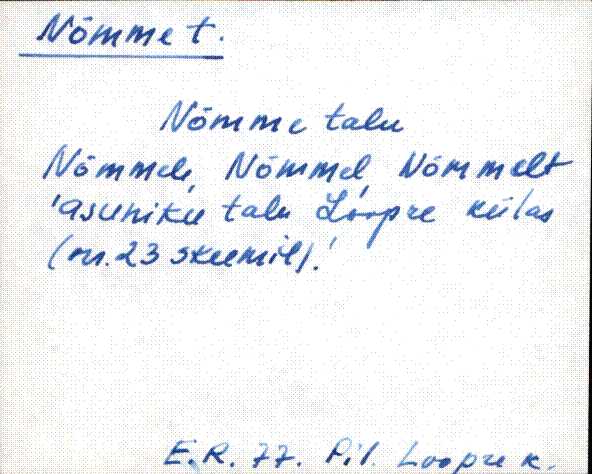 Nõmme t.
Nõmme talu
Nõmmele, Nõmmel, Nõmmelt
'asuniku talu Loopre külas
(nr. 23 skeemil).'
E.R. 77. Pil. Loopre k.